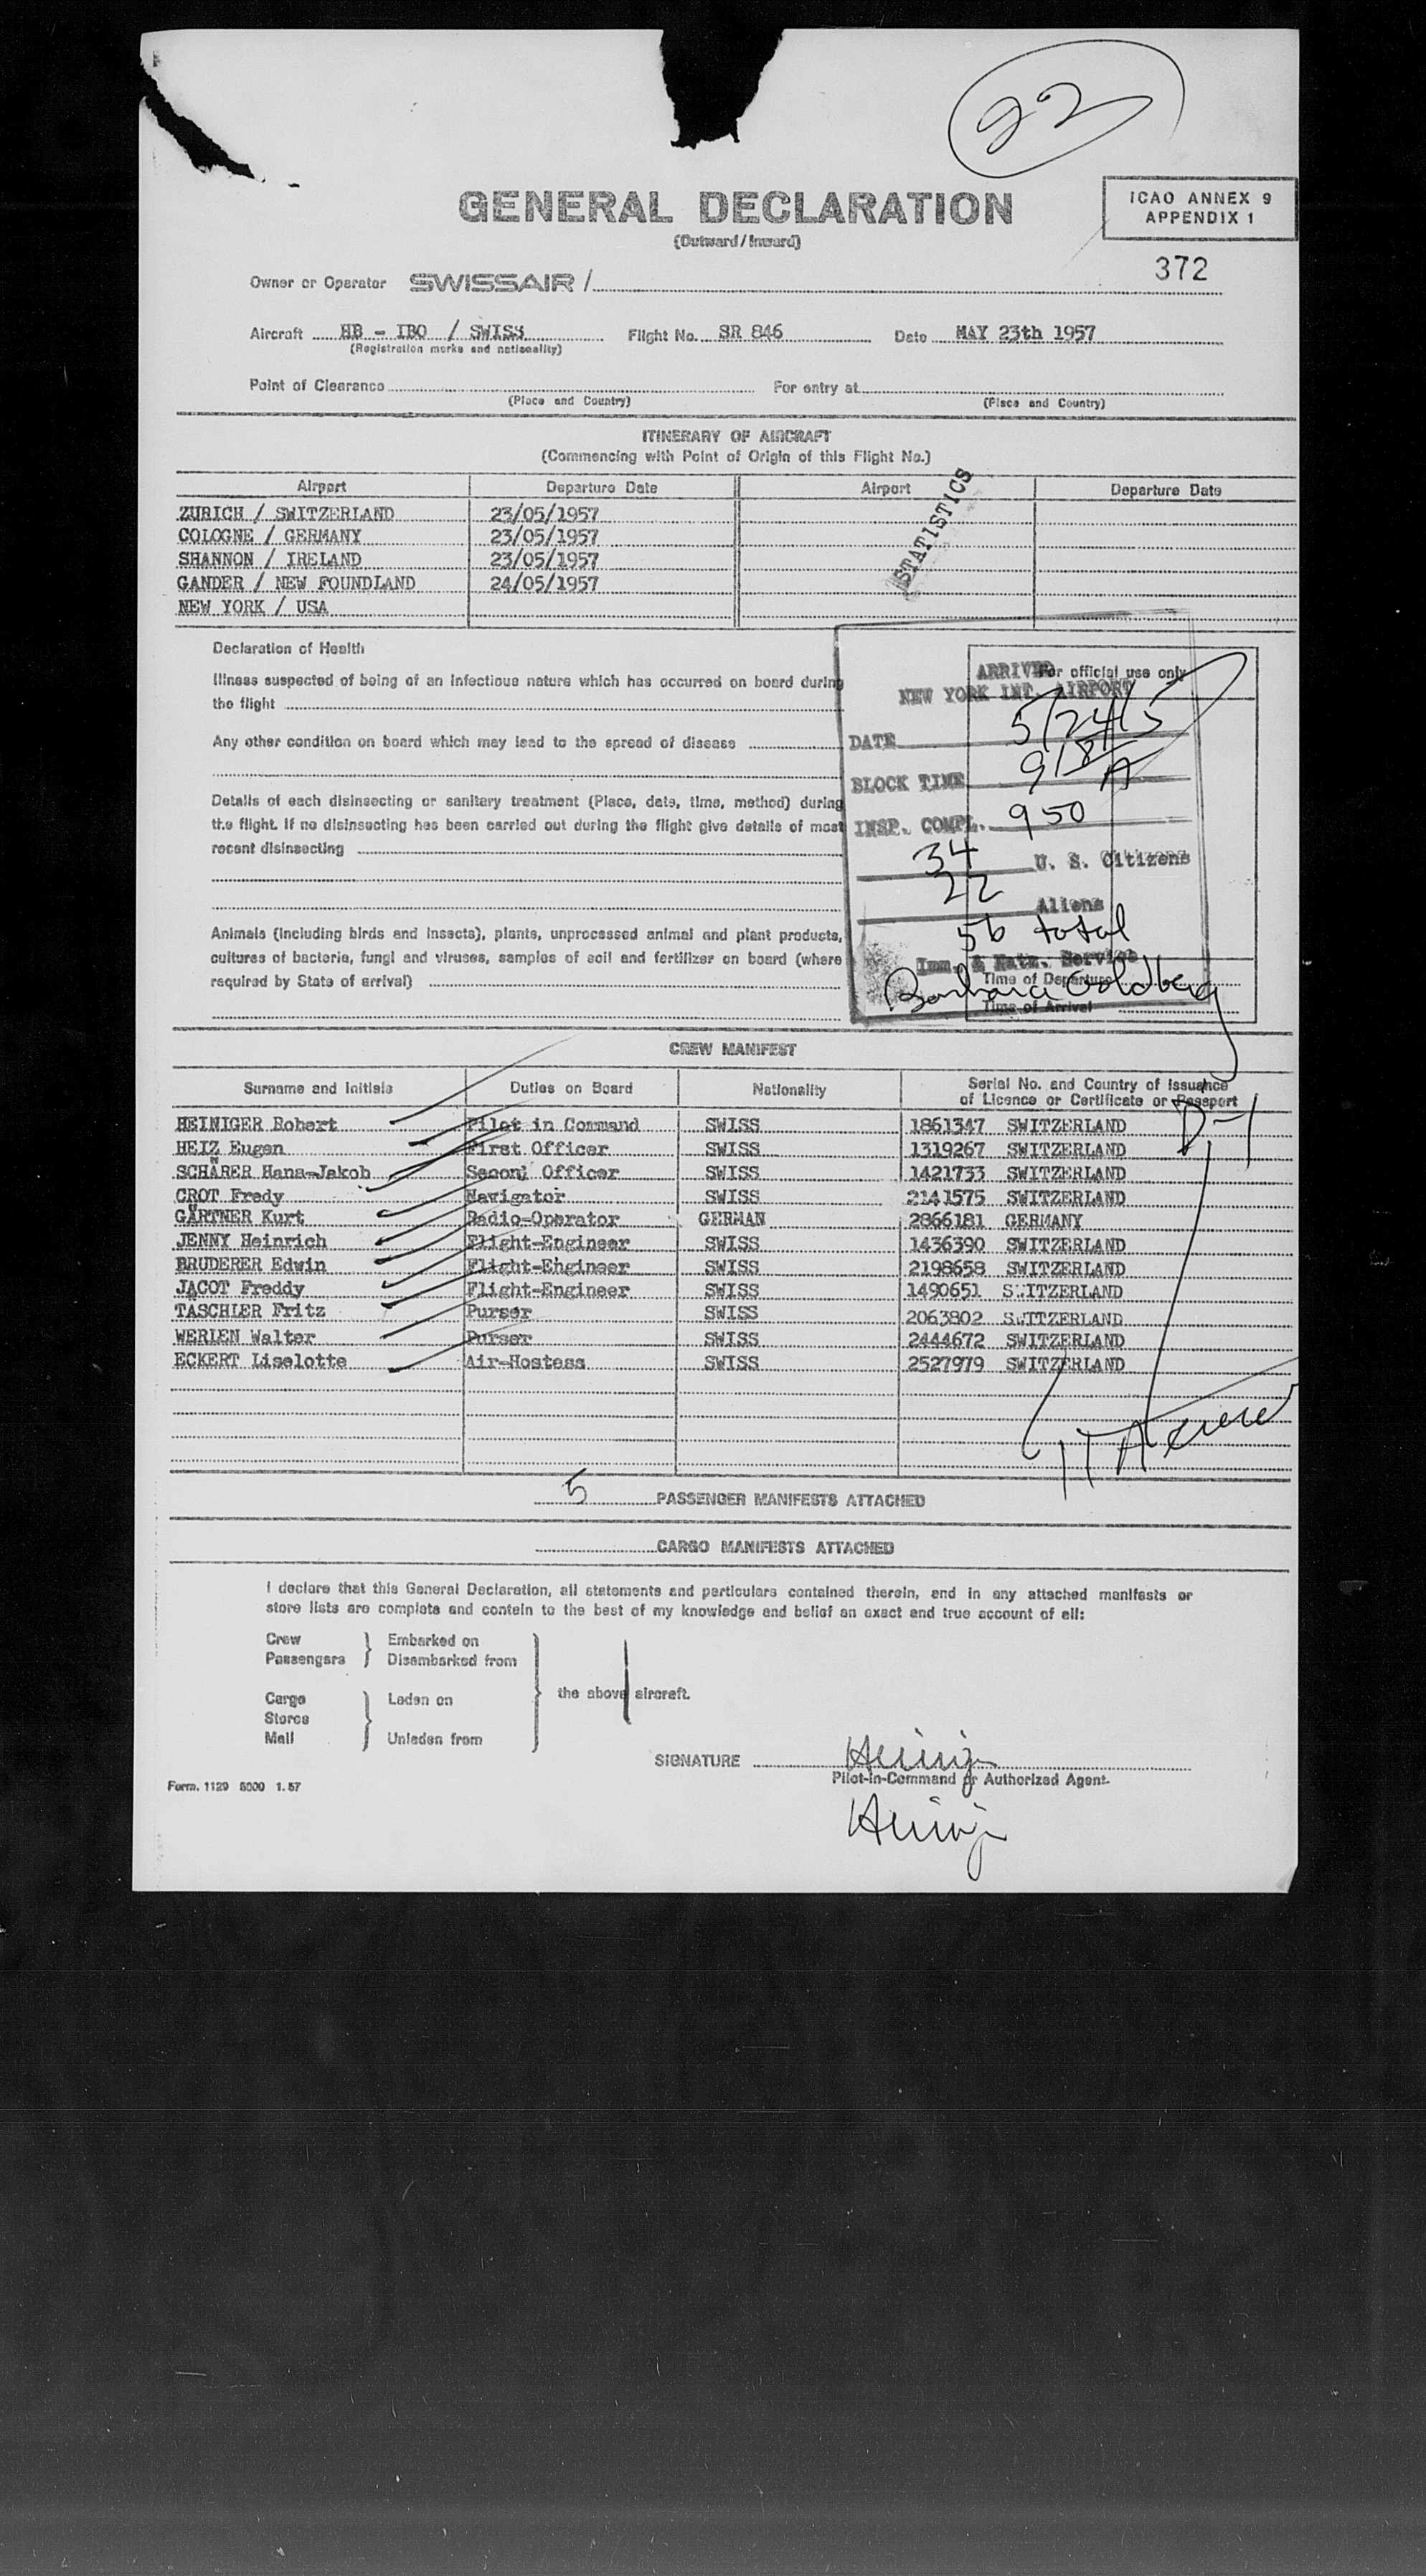 22
GENERAL DECLARATION
(Outward / Inward)
ICAO ANNEX 9
APPENDIX 1
372
Owner or Operator SWISSAIR /
Aircraft HB - IBO / SWISS Flight No. SR 846 Date MAY 23th 1957
(Registration marks and nationality)
Point of Clearance For entry at
(Place and Country) (Place and Country)
ITINERARY OF AIRCRAFT
(Commencing with Point of Origin of this Flight No.)
Airport Departure Date Airport Departure Date
ZURICH / SWITZERLAND 23/05/1957
COLOGNE / GERMANY 23/05/1957
SHANNON / IRELAND 23/05/1957
GANDER / NEW FOUNDLAND 24/05/1957
NEW YORK / USA
STATISTICS
Declaration of Health
Illness suspected of being of an infectious nature which has occurred on board during
the flight
Any other condition on board which may lead to the spread of disease
Details of each disinsecting or sanitary treatment (Place, date, time, method) during
the flight. If no disinsecting has been carried out during the flight give details of most
recent disinsecting
Animals (including birds and insects), plants, unprocessed animal and plant products,
cultures of bacteria, fungi and viruses, samples of soil and fertilizer on board (where
required by State of arrival)
For official use only
ARRIVED
NEW YORK INT. AIRPORT
DATE 5/24/5
BLOCK TIME 918 A
INSP. COMPL. 950
34 U. S. Citizens
22 Aliens
56 total
Imm. & Natz. Service
Time of Departure
Barbara Goldberg
Time of Arrival
CREW MANIFEST
Surname and Initials Duties on Board Nationality Serial No. and Country of Issuance
of Licence or Certificate or Passport
HEINIGER Robert Pilot in Command SWISS 1861347 SWITZERLAND D-1
HEIZ Eugen First Officer SWISS 1319267 SWITZERLAND
SCHÄRER Hans-Jakob Second Officer SWISS 1421733 SWITZERLAND
CROT Fredy Navigator SWISS 2141575 SWITZERLAND
GÄRTNER Kurt Radio-Operator GERMAN 2866181 GERMANY
JENNY Heinrich Flight-Engineer SWISS 1436390 SWITZERLAND
BRUDERER Edwin Flight-Ehgineer SWISS 2198658 SWITZERLAND
JACOT Freddy Flight-Engineer SWISS 1490651 SWITZERLAND
TÄSCHLER Fritz Purser SWISS 2063802 SWITZERLAND
WERLEN Walter Purser SWISS 2444672 SWITZERLAND
ECKERT Liselotte Air-Hostess SWISS 2527979 SWITZERLAND
5 PASSENGER MANIFESTS ATTACHED
CARGO MANIFESTS ATTACHED
I declare that this General Declaration, all statements and particulars contained therein, and in any attached manifests or
store lists are complete and contein to the best of my knowledge and belief an exact and true account of all:
Crew Embarked on
Passengers Disembarked from
the above aircraft.
Cargo Laden on
Stores
Mail Unladen from
SIGNATURE
Pilot-in-Command or Authorized Agent.
Form. 1129 5000 1. 57